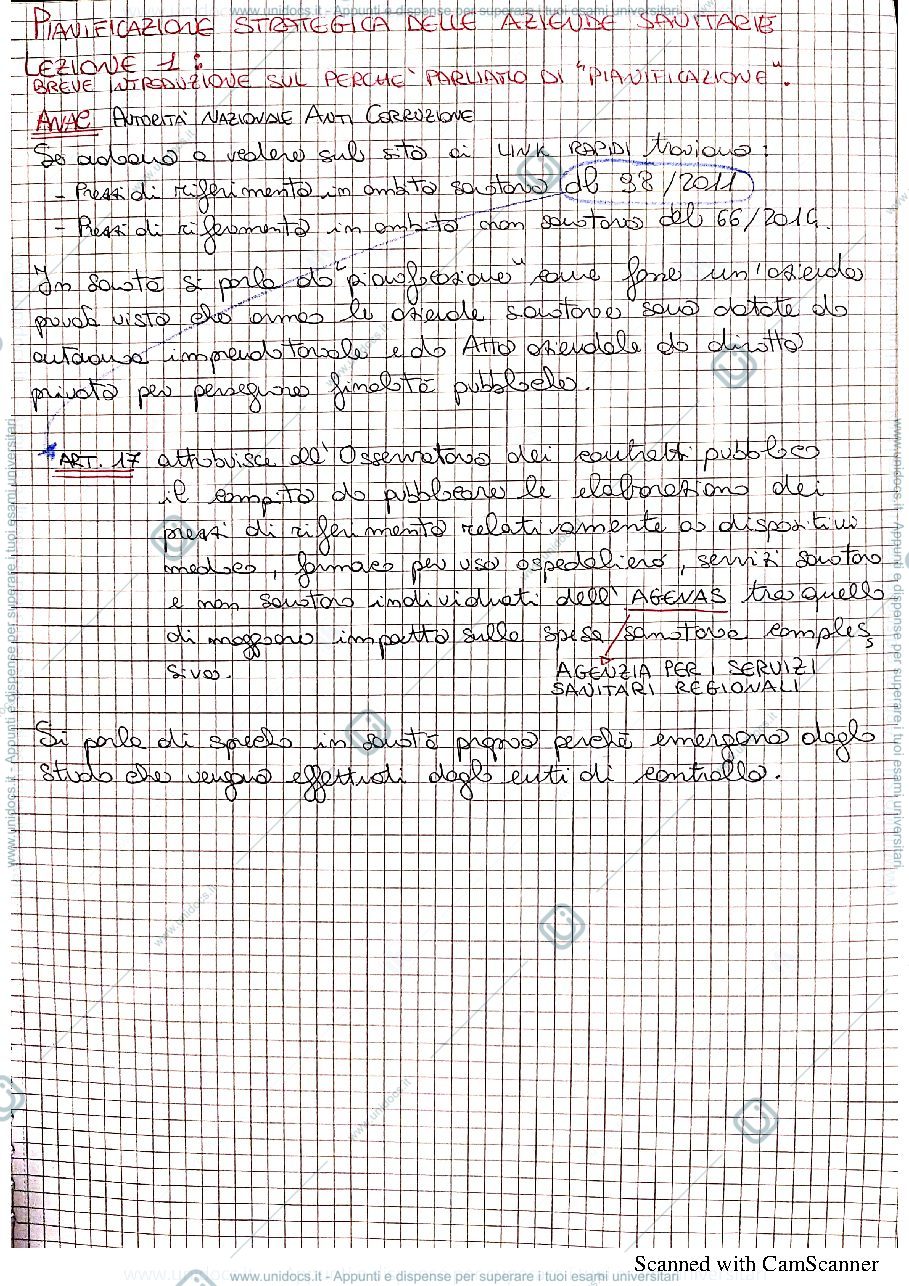 www.unidocs.it - Appunti e dispense per superare i tuoi esami universitari
PIANIFICAZIONE STRATEGICA DELLE AZIENDE SANITARIE
LEZIONE 1:
BREVE INTRODUZIONE SUL PERCHE' PARLIAMO DI "PIANIFICAZIONE".
ANAC AUTORITA' NAZIONALE ANTI CORRUZIONE
Se andiamo a vedere sul sito ai LINK RAPIDI troviamo:
- Prezzi di riferimento in ambito sanitario dl 98/2011
- Prezzi di riferimento in ambito non sanitario del 66/2014.
In sanità si parla di "pianificazione" come fosse un'azienda
privata visto che ormai le aziende sanitarie sono dotate di
autonomia imprenditoriale e di Atto aziendale di diritto
privato per perseguire finalità pubbliche.
* ART. 17 attribuisce all'Osservatorio dei contratti pubblici
il compito di pubblicare le elaborazioni dei
prezzi di riferimento relativamente a dispositivi
medici, farmaci per uso ospedaliero, servizi sanitari
e non sanitari individuati dell' AGENAS tra quelli
di maggiore impatto sulla spesa sanitaria comples
siva.
AGENZIA PER I SERVIZI
SANITARI REGIONALI
Si parla di sprechi in sanità proprio perché emergono dagli
studi che vengno effettuati dagli enti di controllo.
www.unidocs.it - Appunti e dispense per superare i tuoi esami universitari
Scanned with CamScanner